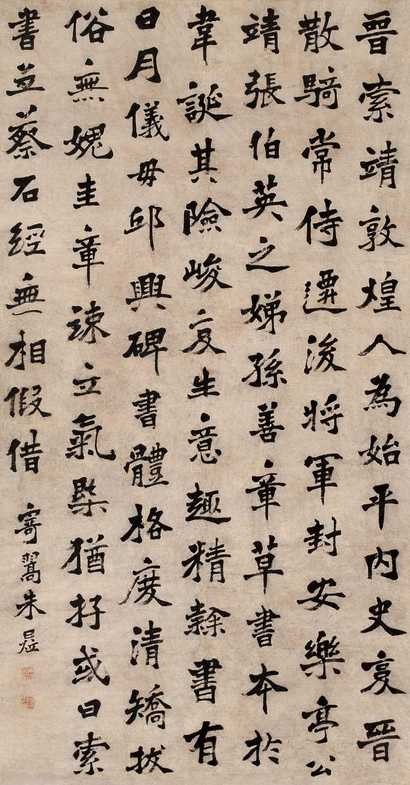 晉索靖敦煌人為始平內史㪅晉
散騎常侍遷後將軍封安樂亭公
靖張伯英之娣孫善章草書本於
韋誕其險峻㪅生意趣精隸書有
日月儀毋邱興碑書體格度清矯拔
俗無媿圭章竦立氣槩猶存或曰索
書並蔡石經無相假借
寄翯朱